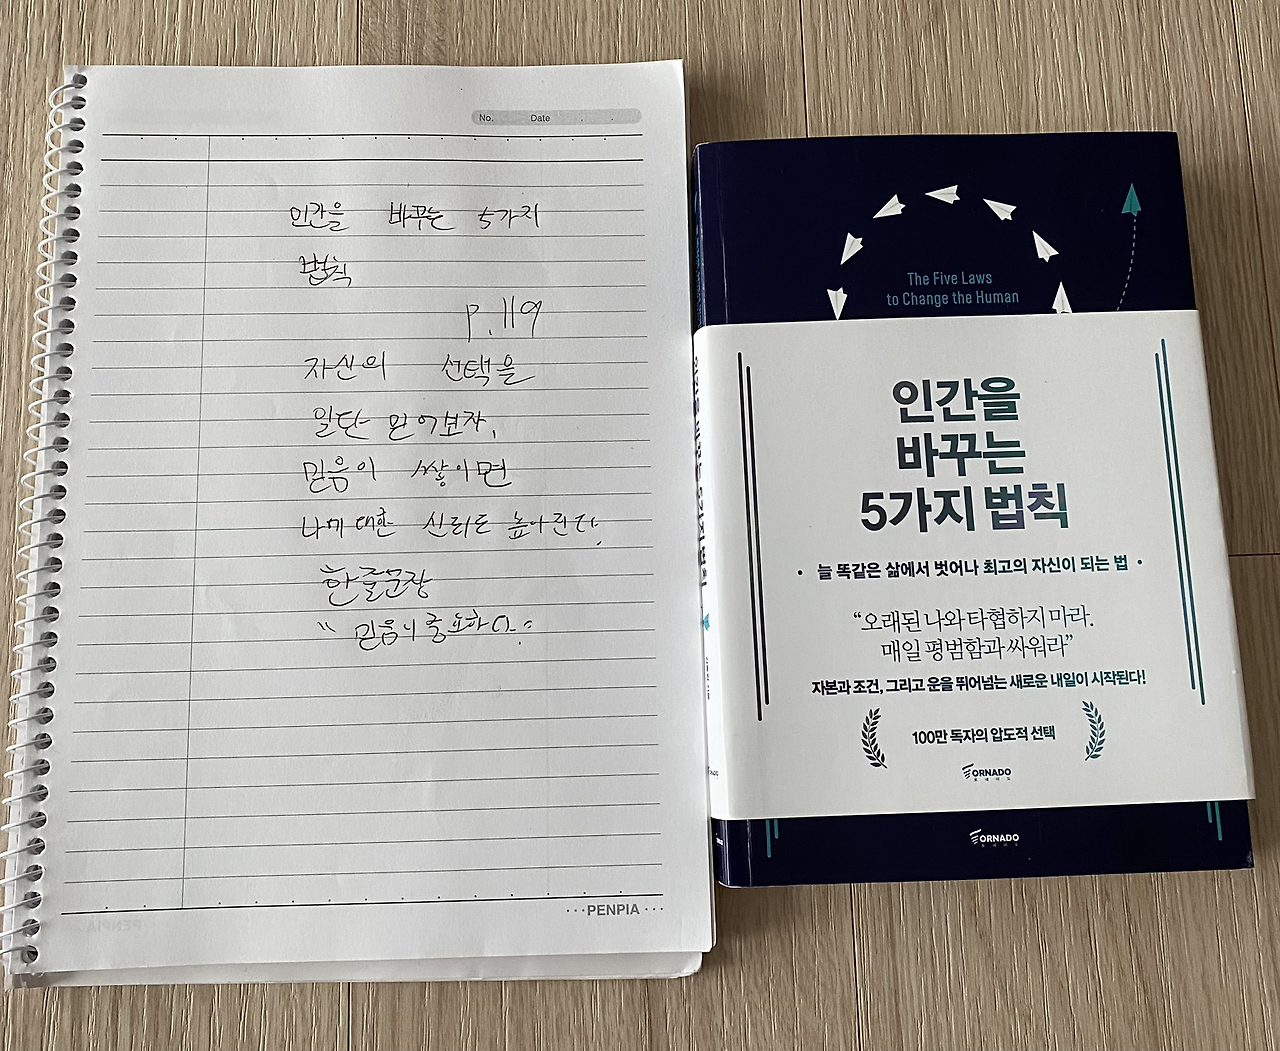 No. Date
인간을 바꾸는 5가지
법칙
p.119
자신의 선택을
일단 믿어보자.
믿음이 쌓이면
나에 대한 신뢰도 높아진다.
한줄문장
" 믿음이 중요하다. "
PENPIA
The Five Laws
to Change the Human
인간을
바꾸는
5가지 법칙
• 늘 똑같은 삶에서 벗어나 최고의 자신이 되는 법 •
“오래된 나와 타협하지 마라.
매일 평범함과 싸워라”
자본과 조건, 그리고 운을 뛰어넘는 새로운 내일이 시작된다!
100만 독자의 압도적 선택
TORNADO
토네이도
TORNADO
토네이도